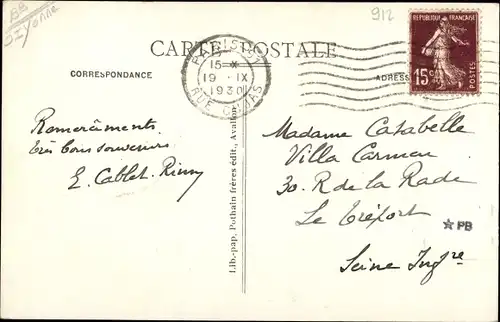 BB
S/Yonne
912
CARTE POSTALE
CORRESPONDANCE
ADRESSE
PARIS
15 *
19 IX
1930
RUE CUJAS
REPUBLIQUE FRANÇAISE
15 c
POSTES
Remerciments
très bons souvenirs
E. Cablet-Rinn
Lib.-pap. Pothain frères édit., Avallon
Madame Casabelle
Villa Carmen
30. R de la Rade
Le Tréport
Seine Infre
★PB